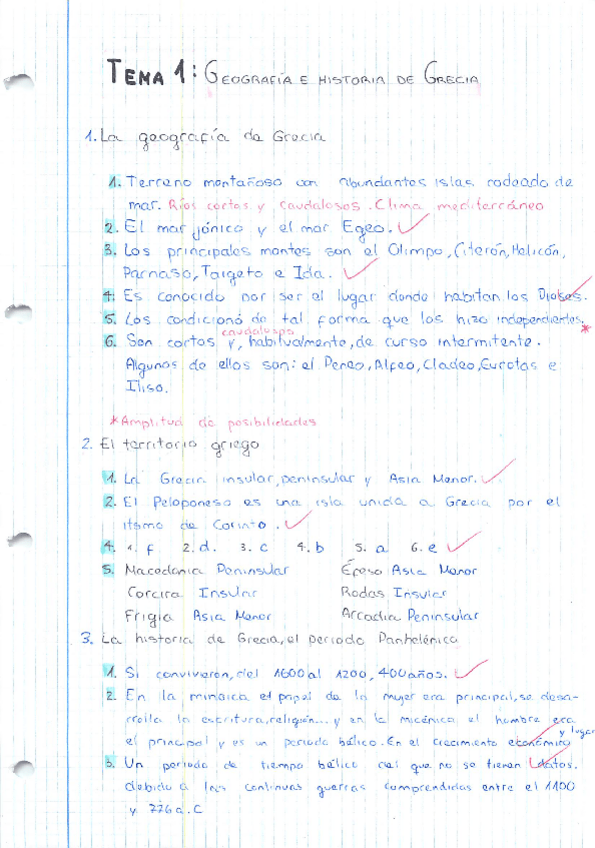 TEMA 1: GEOGRAFÍA E HISTORIA DE GRECIA
1. La geografía de Grecia
1. Terreno montañoso con abundantes islas rodeado de
mar. Ríos cortos y caudalosos. Clima mediterráneo
2. El mar jónico y el mar Egeo.
3. Los principales montes son el Olimpo, Citerón, Helicón,
Parnaso, Taigeto e Ida.
4. Es conocido por ser el lugar donde habitan los Dioses.
5. Los condicionó de tal forma que los hizo independientes.*
caudalosos
6. Son cortos y, habitualmente, de curso intermitente.
Algunos de ellos son: el Peneo, Alfeo, Cladeo, Eurotas e
Iliso.
*Amplitud de posibilidades
2. El territorio griego
1. La Grecia insular, peninsular y Asia Menor.
2. El Peloponeso es una isla unida a Grecia por el
itsmo de Corinto.
4. 1. f 2. d. 3. c 4. b 5. a 6. e
5. Macedonia Peninsular Éfeso Asia Menor
Corcira Insular Rodas Insular
Frigia Asia Menor Arcadia Peninsular
3. La historia de Grecia, el periodo Panhelénico
1. Si convivieron, del 1600 al 1200, 400 años.
2. En la minoica el papel de la mujer era principal, se desa-
rrolla la escritura, religión... y en la micénica el hombre era
y lugar
el principal y es un periodo bélico. En el crecimiento económico
3. Un periodo de tiempo bélico del que no se tienen datos.
debido a las continuas guerras comprendidas entre el 1100
y 776 a.C